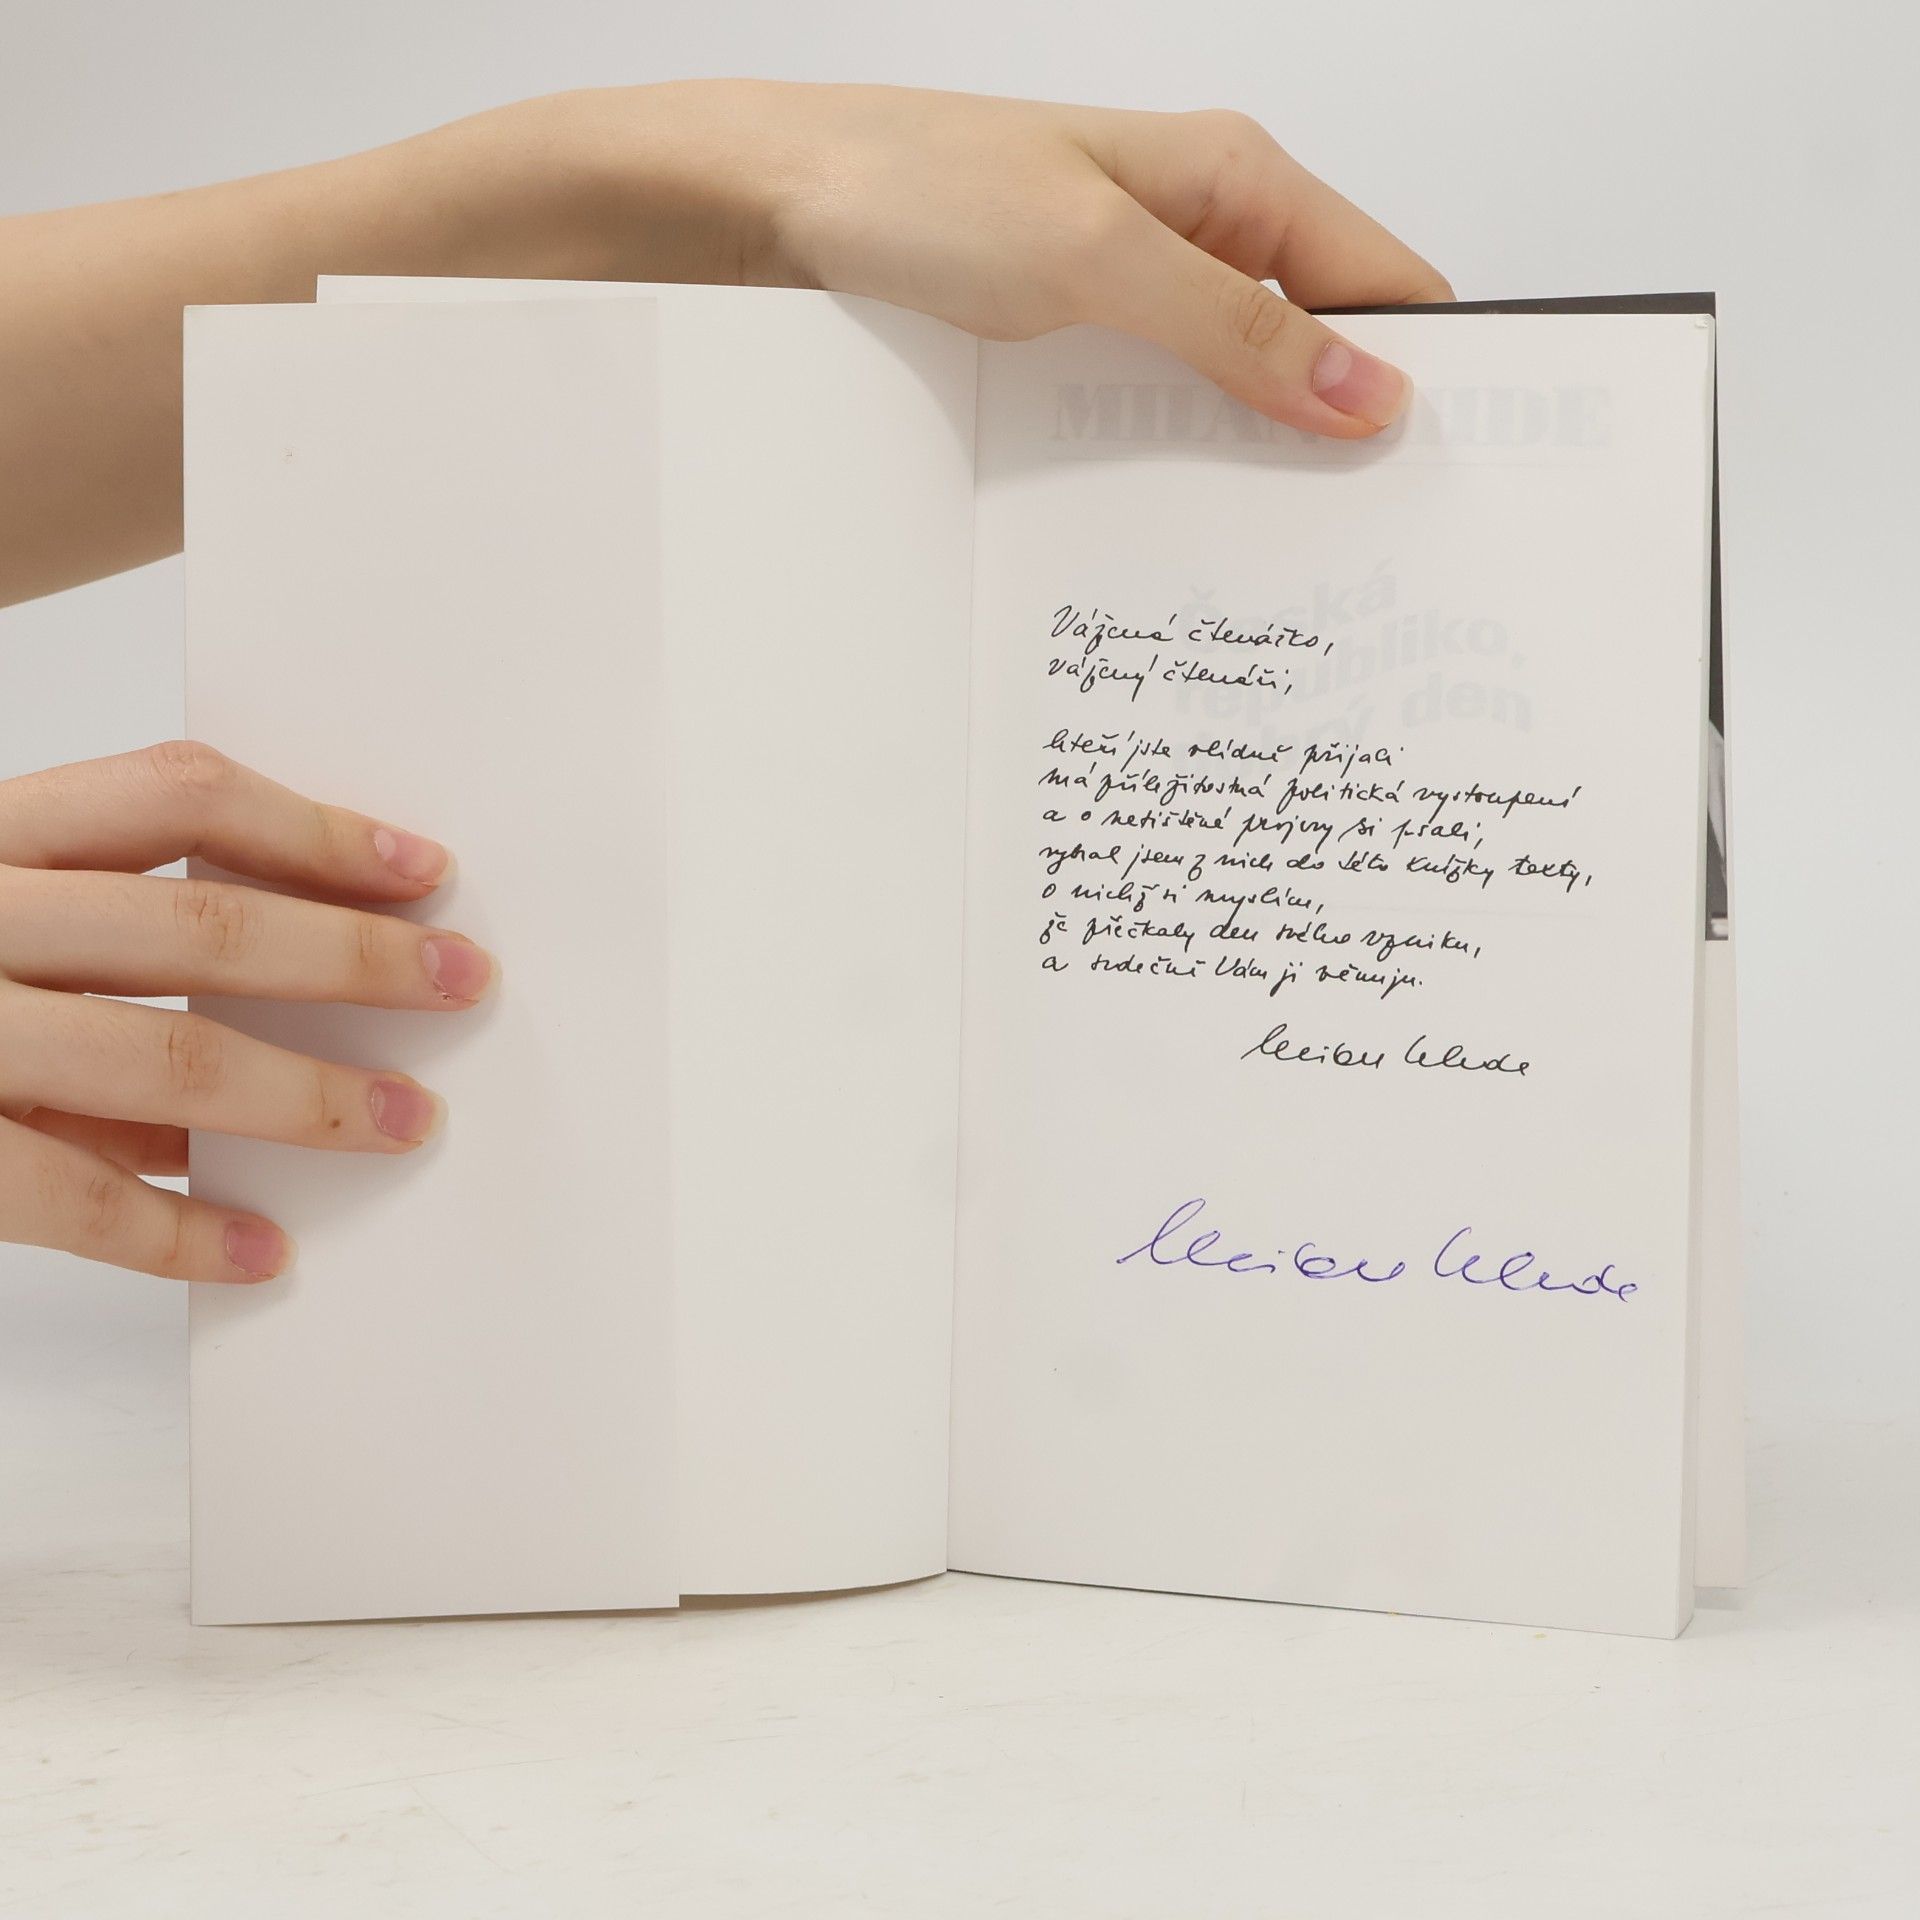 MILAN UHDE
Česká
republiko,
dobrý den
Vážená čtenářko,
vážený čtenáři,
kteří jste vlídně přijali
má příležitostná politická vystoupení
a o netištěné projevy si psali,
vybral jsem z nich do této knížky texty,
o nichž si myslím,
že přečkaly den svého vzniku,
a srdečně Vám ji věnuju.
Milan Uhde
Milan Uhde